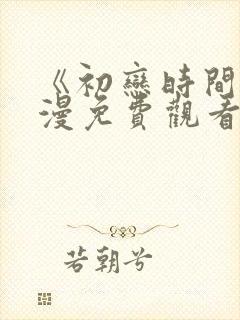 《初戀時間
漫免費觀看
若朝兮